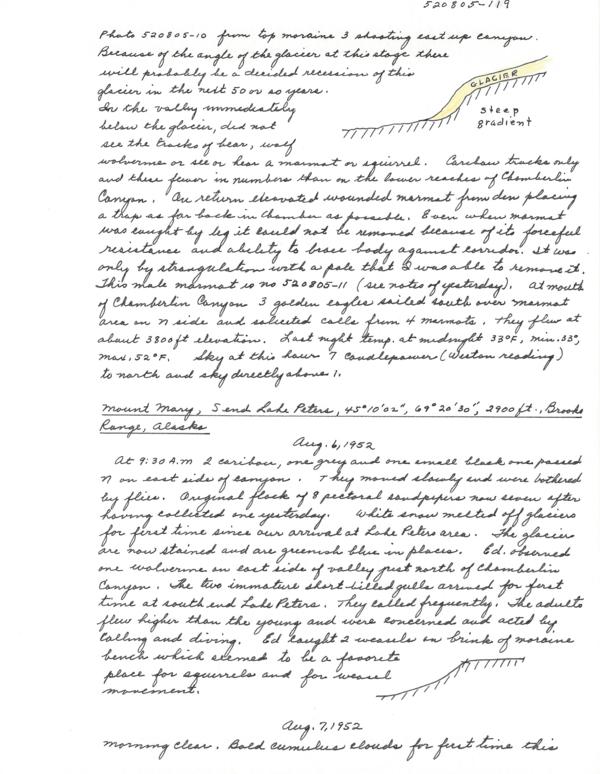 520805-119
Photo 520805-10 from top moraine 3 shooting east up canyon.
Because of the angle of the glacier at this stage there
will probably be a decided recession of this
glacier in the next 50 or so years.
GLACIER
steep
gradient
In the valley immediately
below the glacier, did not
see the tracks of bear, wolf
wolverine or see or hear a marmot or squirrel. Caribou tracks only
and these fewer in numbers than on the lower reaches of Chamberlin
Canyon. On return excavated wounded marmot from den placing
a trap as far back in chamber as possible. Even when marmot
was caught by leg it could not be removed because of its forceful
resistance and ability to brace body against corridor. It was
only by strangulation with a pole that I was able to remove it.
This male marmot is no 520805-11 (see notes of yesterday). At mouth
of Chamberlin Canyon 3 golden eagles sailed south over marmot
area on N side and solicited calls from 4 marmots. They flew at
about 3800 ft elevation. Last night temp. at midnight 33°F, min. 33°,
max. 52°F. Sky at this hour 7 candlepower (Weston reading)
to north and sky directly above 1.
Mount Mary, S end Lake Peters, 45°10'02", 69°20'30", 2900 ft., Brooks
Range, Alaska
Aug. 6, 1952
At 9:30 A.M 2 caribou, one grey and one small black one passed
N on east side of canyon. They moved slowly and were bothered
by flies. Original flock of 8 pectoral sandpipers now seven after
having collected one yesterday. White snow melted off glaciers
for first time since our arrival at Lake Peters area. The glaciers
are now stained and are greenish blue in places. Ed. observed
one wolverine on east side of valley just north of Chamberlin
Canyon. The two immature short-billed gulls arrived for first
time at south end Lake Peters. They called frequently. The adults
flew higher than the young and were concerned and acted by
calling and diving. Ed caught 2 weasels on brink of moraine
bench which seemed to be a favorite
place for squirrels and for weasel
movement.
Aug. 7, 1952
Morning clear. Bold cumulus clouds for first time this